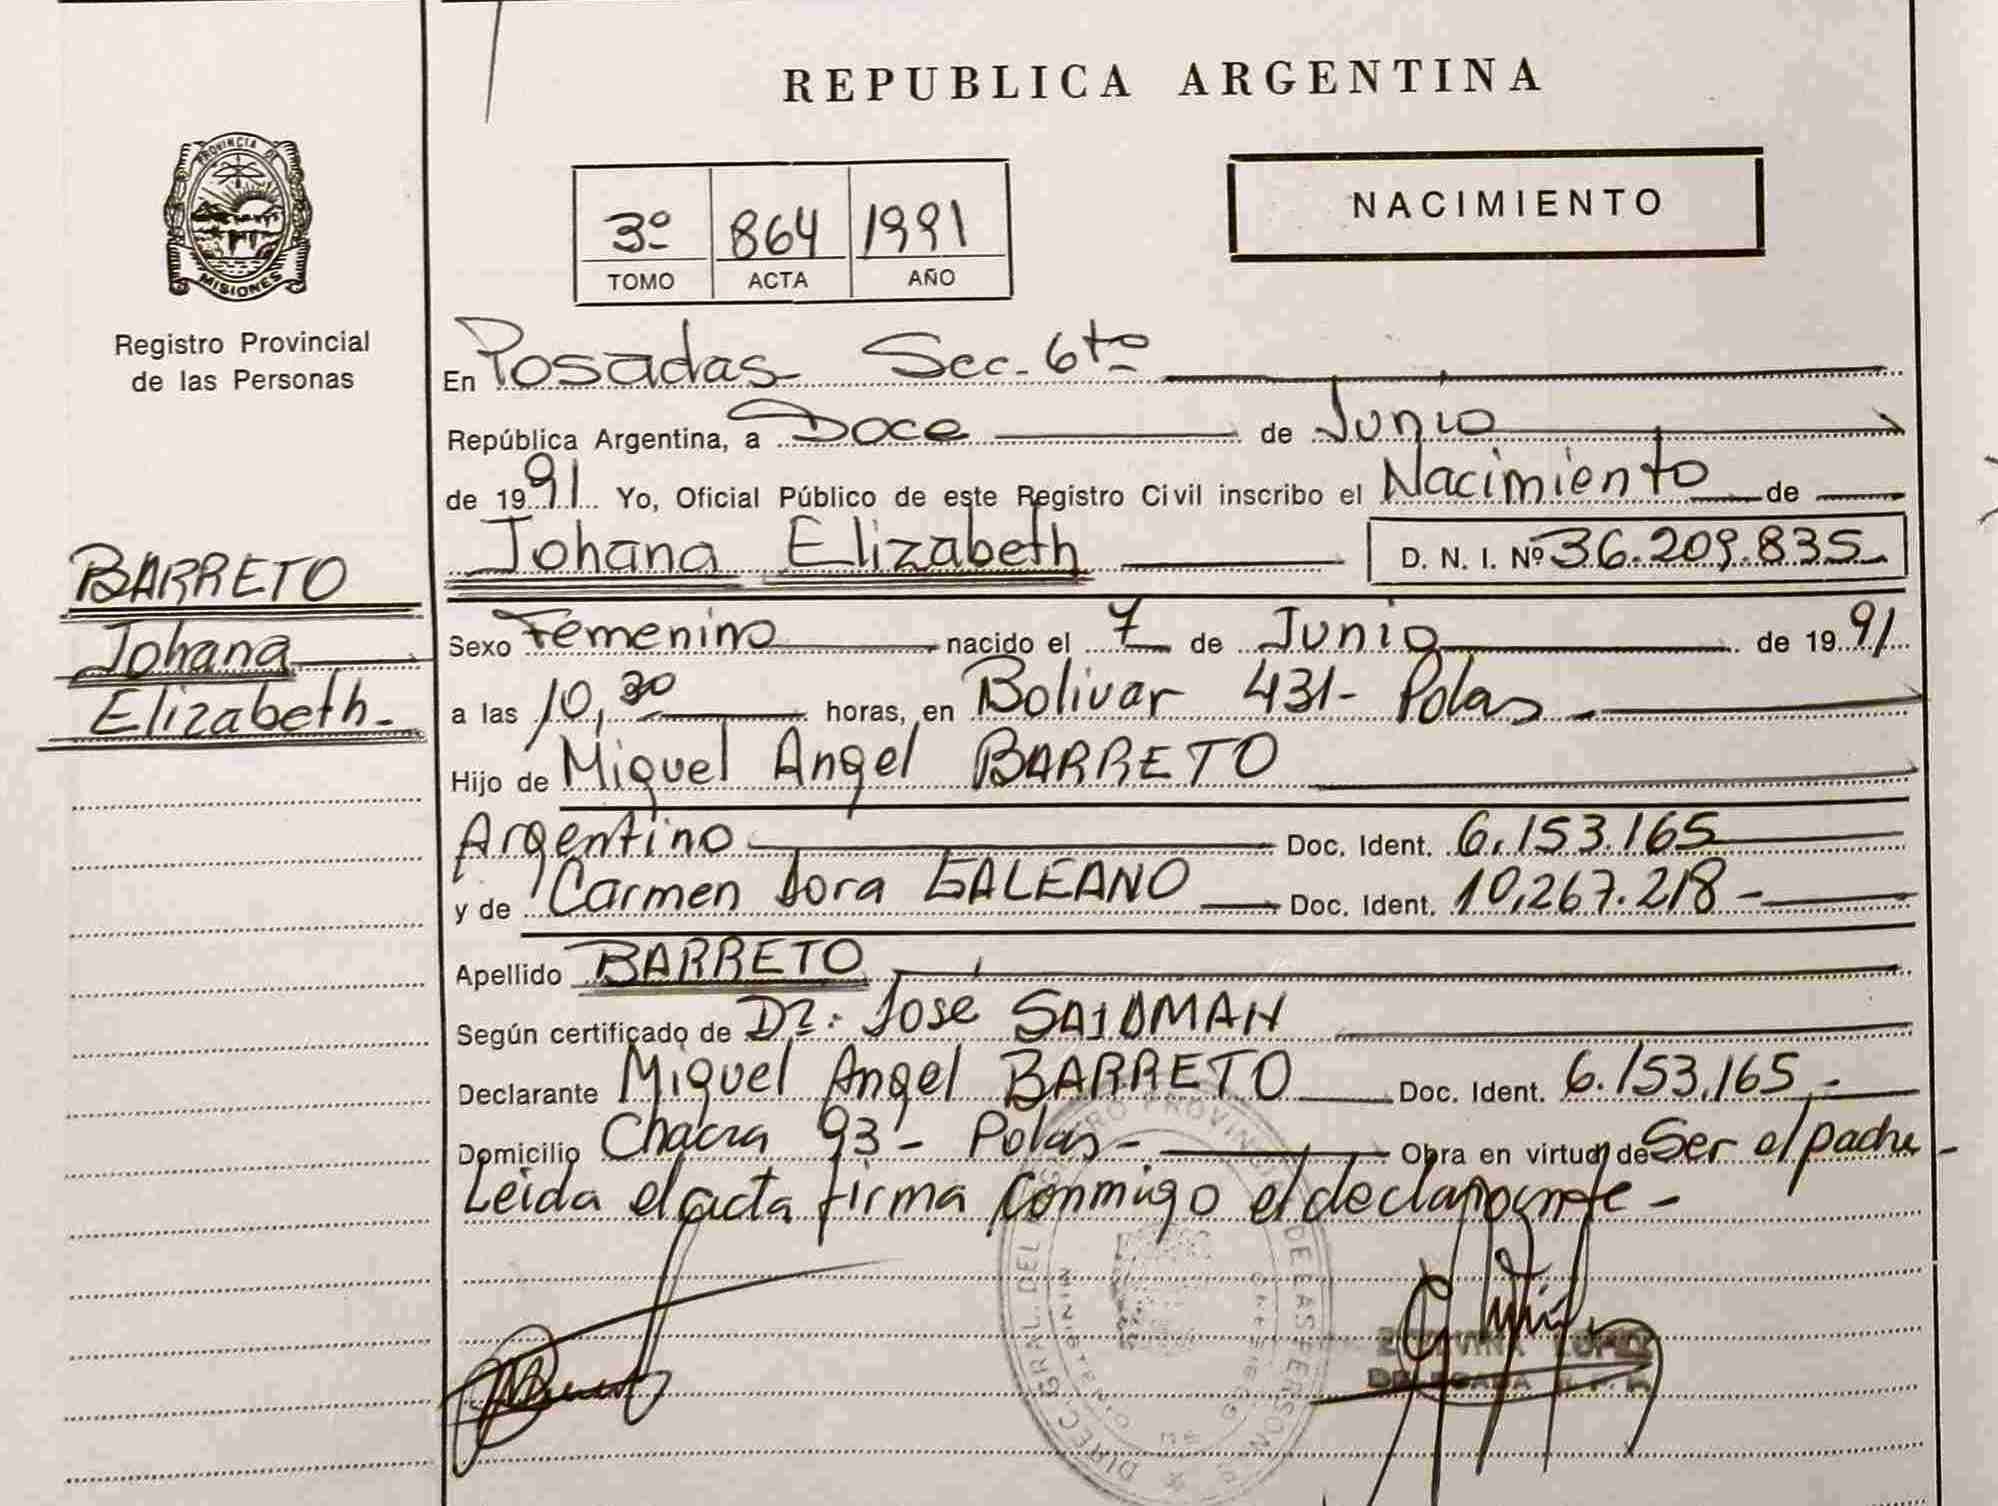 REPUBLICA ARGENTINA
PROVINCIA DE
MISIONES
Registro Provincial
de las Personas
NACIMIENTO
3º 864 1991
TOMO ACTA AÑO
En Posadas Sec. 6ta
República Argentina, a Doce de Junio
de 1991 Yo, Oficial Público de este Registro Civil inscribo el Nacimiento de
Johana Elizabeth D. N. I. Nº 36.209.835
BARRETO
Johana
Elizabeth
Sexo Femenino nacido el 7 de Junio de 1991
a las 10,30 horas, en Bolivar 431- Pdas
Hijo de Miguel Angel BARRETO
Argentino Doc. Ident. 6.153.165
y de Carmen Dora GALEANO Doc. Ident. 10,267.218
Apellido BARRETO
Según certificado de Dr. Jose
Declarante Miguel Angel BARRETO Doc. Ident. 6.153.165
Domicilio Chacra 93 - Pdas - Obra en virtud de Ser el padre
Leida el acta firma conmigo el declarante
DIREC. GRAL. DEL REGISTRO PROVINCIAL DE LAS PERSONAS
MINISTERIO DE GOBIERNO
LOPEZ
DELEGADA R. P. P.